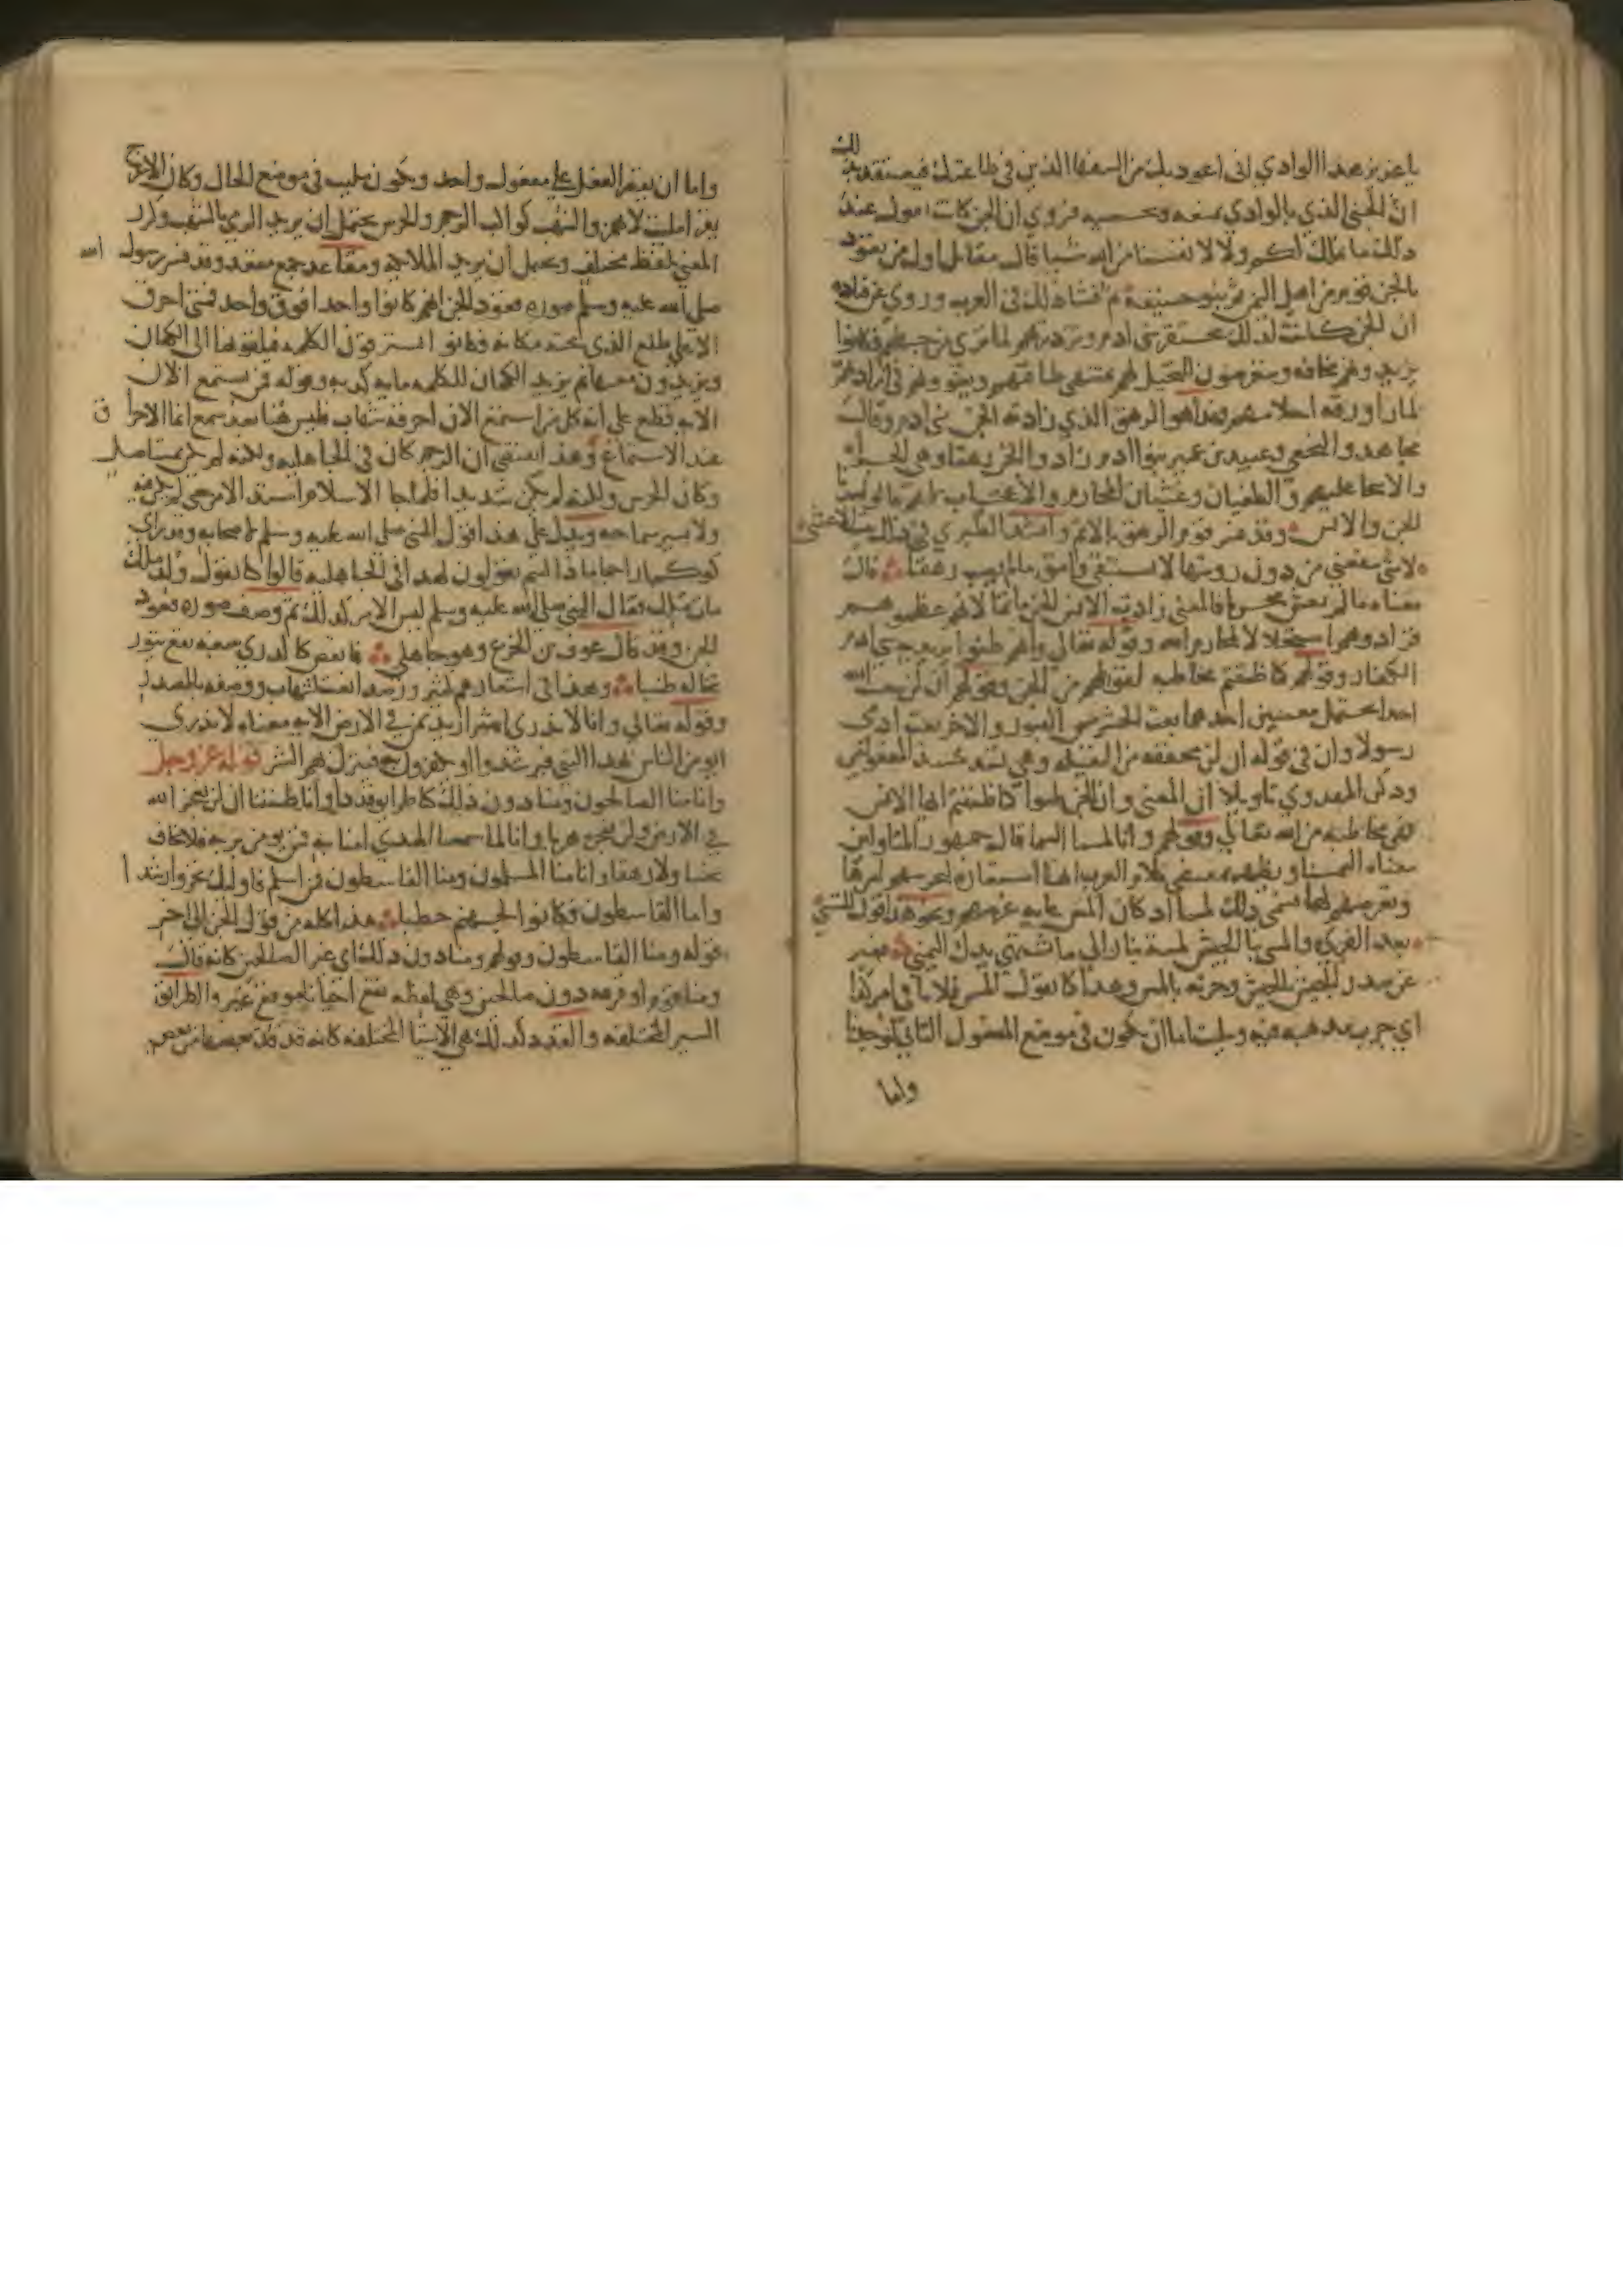 يا عزيز هذا الوادي اني اعوذ بك من السفها الذين في طاعتك فيعتقد بذلك
ان الجني الذي بالوادي يمنعه ويحميه فروي ان الجن كانت تقول عند
ذلك ما نملك لكم ولا لانفسنا من الله شيا قال مقاتل اول من تعوذ
بالجن قوم من اهل اليمن ثم بنو حنيفة ثم فشا ذلك في العرب وروي عن قتادة
ان الجن كانت لذلك تحتقر بني ادم وتزدريهم لما ترى من جهلهم فكانوا
يزيدونهم مخافة ويتعرضون للتخيل لهم بمنتهى طاقتهم ويغوونهم في ارادتهم
لما راوا رقة احلامهم فهذا هو الرهق الذي زادته الجن بني ادم وقال
مجاهد والنخعي وعبيد بن عمير بنوا ادم زادوا الجن رهقا وهي الجراة
والانتخا عليهم والطغيان وغشيان المحارم والاعجاب لانهم قالوا سدنا
الجن والانس وقد فسر قوم الرهق بالاثم وانشد الطبري في ذلك بيت الاعشى
لا شي ينفعني من دون رويتها لا يشتفي وامق ما لم يصب رهقا قال
معناه ما لم يغش محرما فالمعنى زادت الانس الجن ماثما لانهم عظموهم
فزادوهم استحلالا لمحارم الله وقوله تعالى وانهم ظنوا يريد بني ادم
الكفار وقولهم كما ظننتم مخاطبة لقومهم من الجن وقولهم ان لن يبعث الله
احدا يحتمل معنيين احدهما بعث الحشر من القبور والاخر بعث ادمي
رسولا وان في قوله ان لن مخففة من الثقيلة وهي تسد مسد المفعولين
وذكر المهدوي تاويلا ان المعنى وان الجن ظنوا كما ظننتم ايها الانس
فهي مخاطبة من الله تعالى وقولهم وانا لمسنا السما قال جمهور المتاولين
معناه التمسنا
عن صدر الجيش للجيش وحربه بالمس وهذا كما تقول المس فلانا في امر كذا
اي جرب مذهبه فيه وملئت اما ان يكون في موضع المفعول الثاني لوجدنا
واما
واما ان يقتصر الفعل على مفعول واحد ويكون ملئت في موضع الحال وكان الاعرج
يقرا مليت لا يهمز والشهب كواكب الرجم والحرس يحتمل ان يريد الرمي بالشهب وكرر
المعنى بلفظ مختلف ويحتمل ان يريد الملايكة ومقاعد جمع مقعد وقد فسر رسول الله
صلى الله عليه وسلم صورة قعود الجن انهم كانوا واحدا فوق واحد فمتى احرق
الاعلى طلع الذي تحته مكانه فكانوا يسترقون الكلمة فيلقونها الى الكهان
ويزيدون معها ثم يزيد الكهان للكلمة ماية كذبة وقوله فمن يستمع الان
الاية قطع على انه كل من استمع الان احرقه شهاب فليس هنا بعد سمع انما الاحراق
عند الاستماع وهذا يقتضي ان الرجم كان في الجاهلية ولكنه لم يكن بمستاصل
وكان الحرس ولكنه لم يكن شديدا فلما جا الاسلام اشتد الامر حتى لم يكن فيه
ولا يسير سماحة ويدل على هذا قول النبي صلى الله عليه وسلم لاصحابه وقد راى
كوكبا راجما ماذا كنتم تقولون لهذا في الجاهلية قالوا كنا نقول ولد ملك
مات ملك فقال النبي صلى الله عليه وسلم ليس الامر كذلك ثم وصف صورة قعود
الجن وقد قال عوف بن الخرع وهو جاهلي فانقض كالدري يتبعه نقع يثور
تخاله طنبا وهذا في اشعارهم كثير ورصدا نعت لشهاب ووصفه بالمصدر
وقوله تعالى وانا لا ندري اشر اريد بمن في الارض الاية معناه لا ندري
ايومن الناس بهذا النبي فيرشدوا او يكفرون به فينزل بهم الشر قوله عز وجل
وانا منا الصالحون ومنا دون ذلك كنا طرايق قددا وانا ظننا ان لن نعجز الله
في الارض ولن نعجزه هربا وانا لما سمعنا الهدى امنا به فمن يومن بربه فلا يخاف
بخسا ولا رهقا وانا منا المسلمون ومنا القاسطون فمن اسلم فاوليك تحروا رشدا
واما القاسطون فكانوا لجهنم حطبا هذا كله من قول الجن الى اخر
قوله ومنا القاسطون وقولهم ومنا دون ذلك اي غير الصالحين كانه قال
ومنا قوم او فرقة دون صالحين وهي لفظة تقع احيانا موقع غير والطرايق
السير المختلفة والقدد كذلك هي الاشيا المختلفة كانه قد قد بعضها من بعض